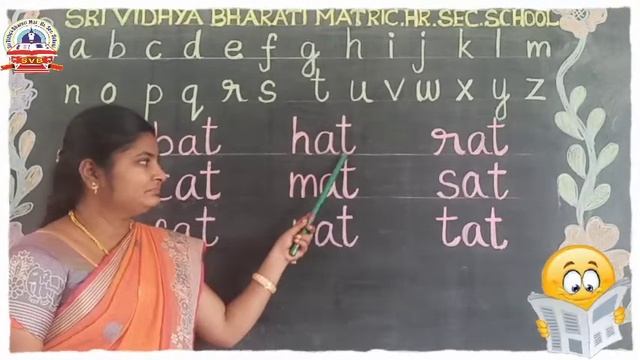 SRI VIDHYA BHARATI MATRIC.HR.SEC.SCHOOL
SVB
a b c d e f g h i j k l m
n o p q r s t u v w x y z
bat hat rat
cat mat sat
tat